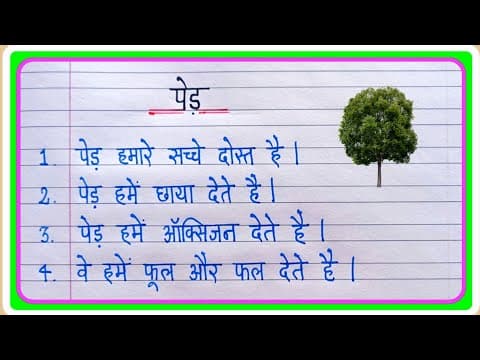 पेड़
1. पेड़ हमारे सच्चे दोस्त है।
2. पेड़ हमें छाया देते है।
3. पेड़ हमें ऑक्सिजन देते है।
4. वे हमें फूल और फल देते है।